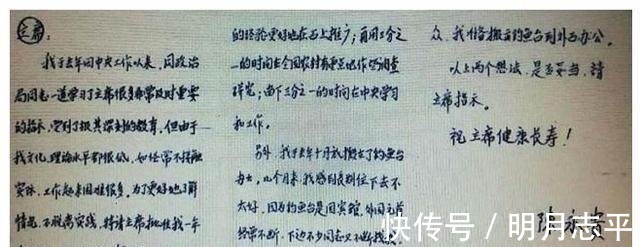 主席:
我于去年回中央工作以来,同政治
局同志一道学习了主席很多非常及时重要
的指示,受到了极其深刻的教育,但由于
我文化、理论水平都很低,如经常不接触
实际,工作起来困难很多,为了更好地了解
情况,不脱离实践,特请主席批准我一年
的经验更好地在面上推广;再用三分之
一的时间在全国农村有重点地作些调查
研究;留下三分之一的时间在中央学习
和工作。
另外,我于去年十月 搬出了钓鱼台
办公,几个月来,我感到长期住下去不
太好,因为钓鱼台是国宾馆,外国
经常不断,下边不少同志又不断找我
众,我准备搬出钓鱼台到外面办公。
以上两个想法,是否妥当,请
主席指示。
祝主席健康长寿!
陈永贵
快传号 / 明月志平